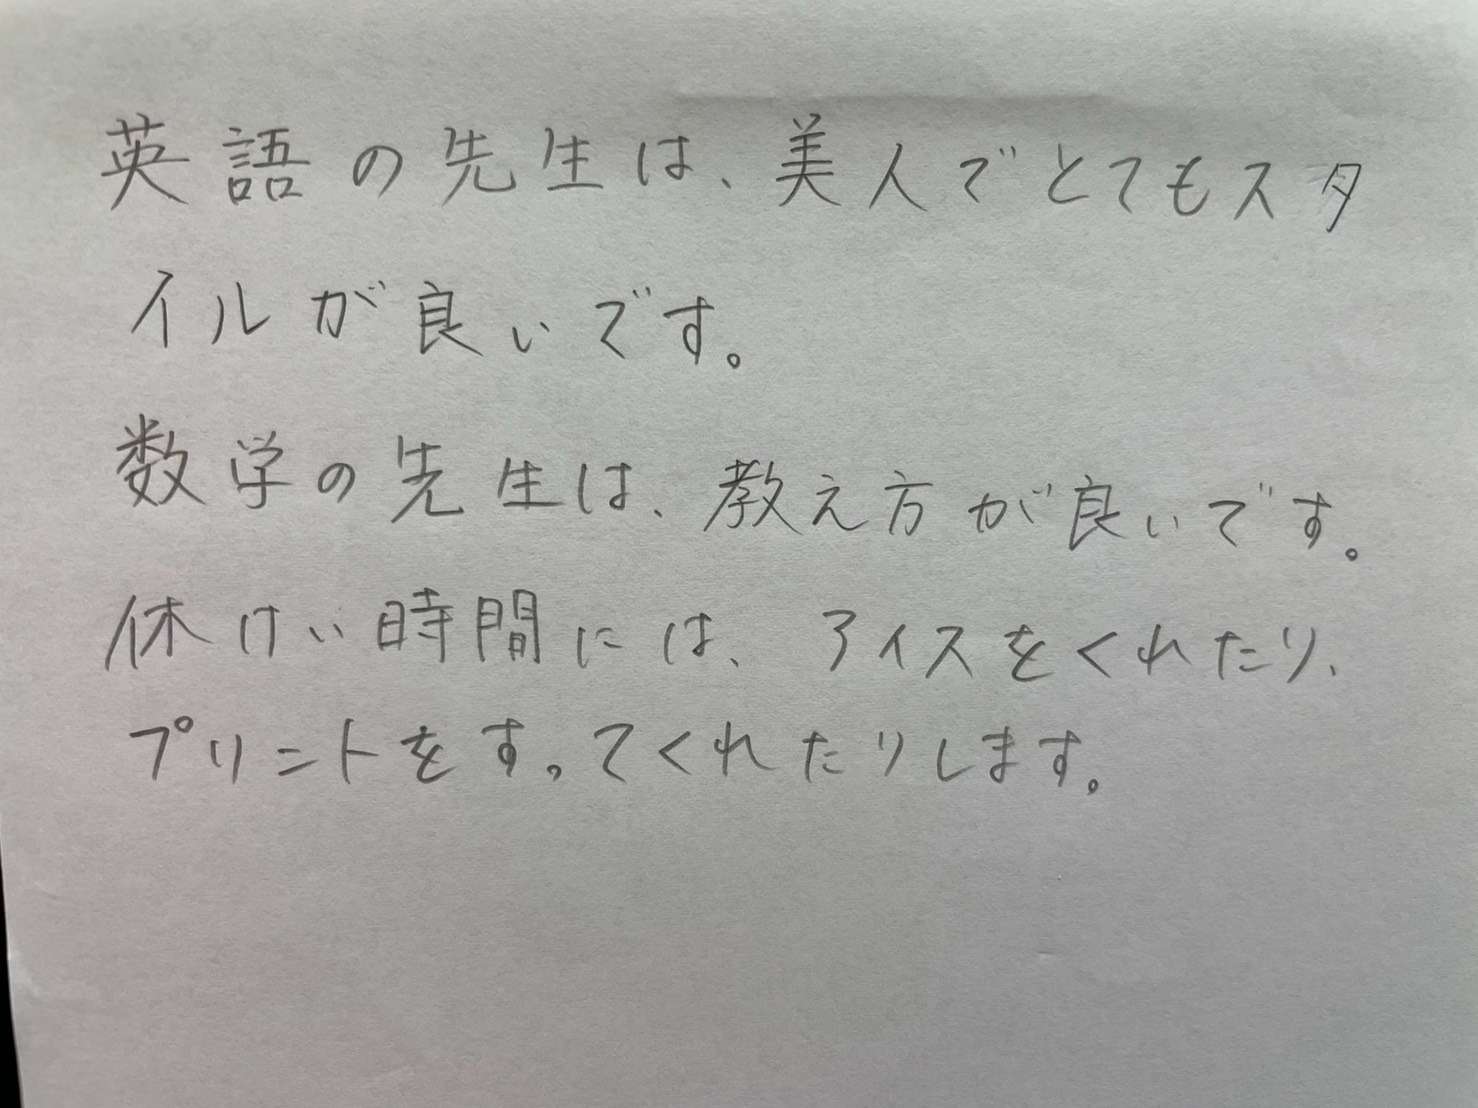 英語の先生は、美人でとてもスタ
イルが良いです。
数学の先生は、教え方が良いです。
休けい時間には、アイスをくれたり、
プリントをすってくれたりします。